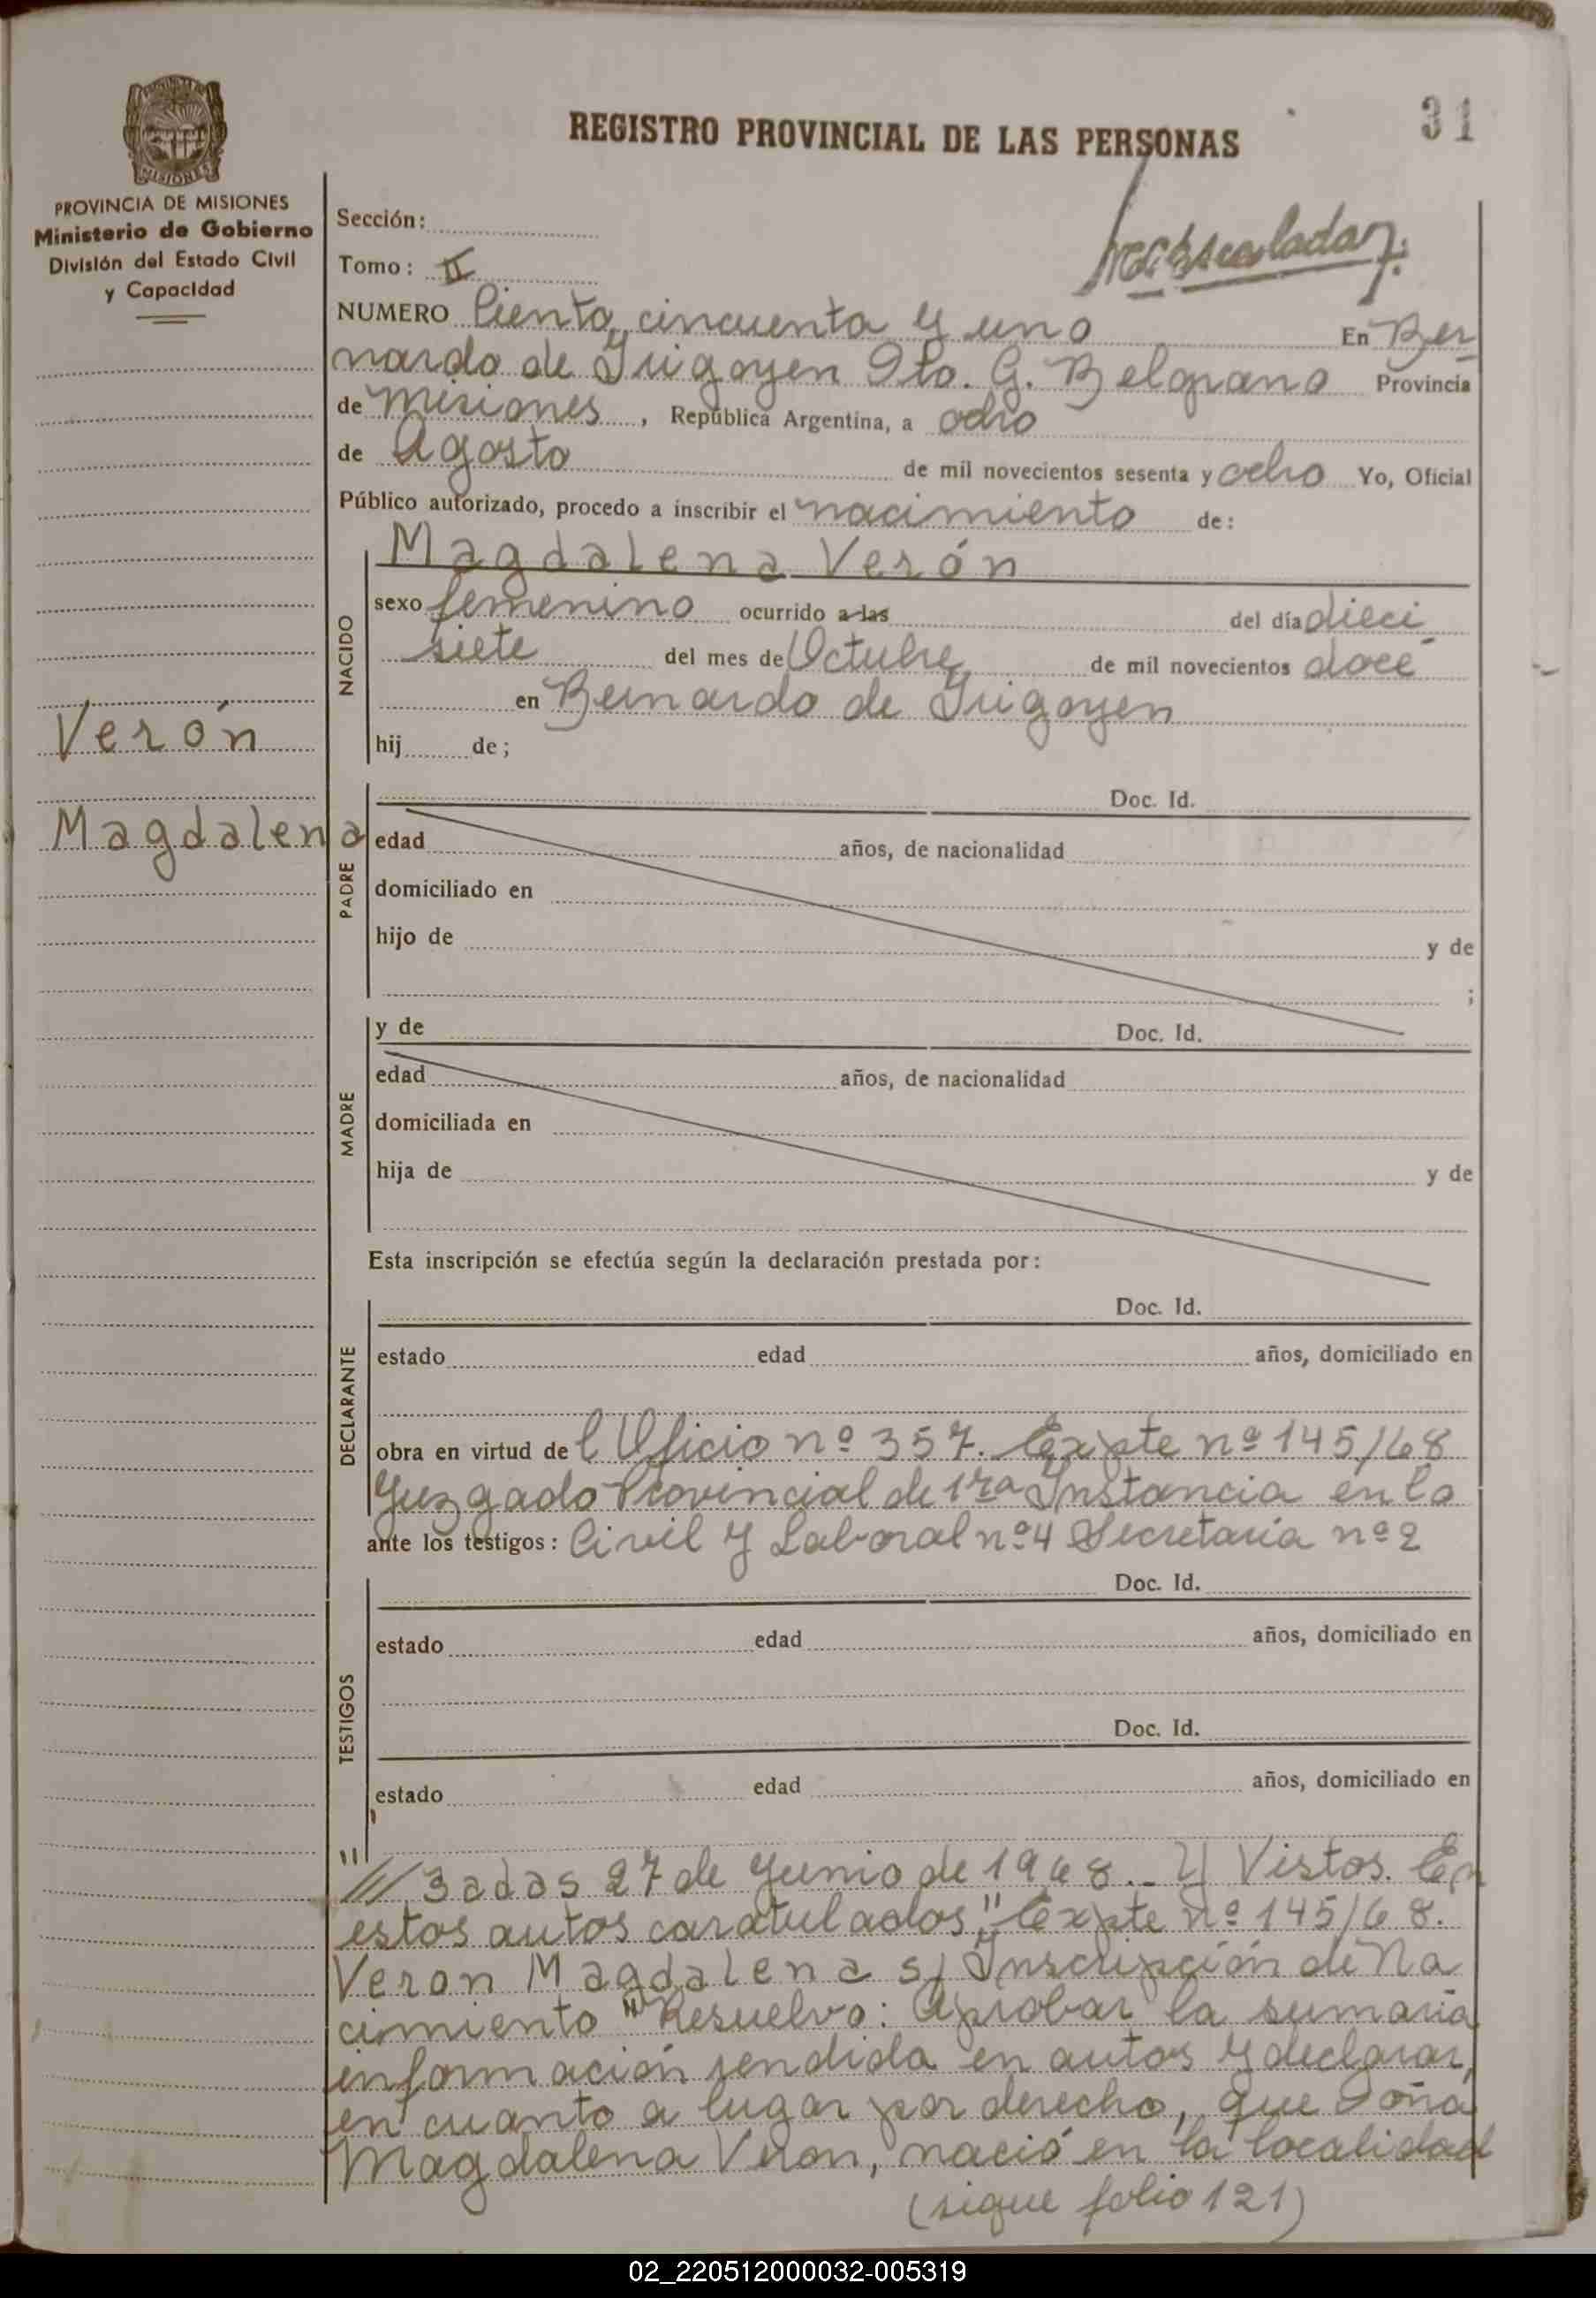 REGISTRO PROVINCIAL DE LAS PERSONAS
31
PROVINCIA DE MISIONES
Ministerio de Gobierno
División del Estado Civil
y Capacidad
Sección:
Tomo: II
NUMERO Ciento, cincuenta y uno En Ber
nardo de Irigoyen Dto. G. Belgrano Provincia
de Misiones, República Argentina, a ocho
de Agosto de mil novecientos sesenta y ocho Yo, Oficial
Público autorizado, procedo a inscribir el nacimiento de:
Magdalena Verón
NACIDO
sexo femenino ocurrido a las del día dieci
siete del mes de Octubre de mil novecientos doce
en Bernardo de Irigoyen
hij de;
Verón
Magdalena
PADRE
Doc. Id.
edad años, de nacionalidad
domiciliado en
hijo de y de
;
MADRE
y de Doc. Id.
edad años, de nacionalidad
domiciliada en
hija de y de
Esta inscripción se efectúa según la declaración prestada por:
DECLARANTE
Doc. Id.
estado edad años, domiciliado en
obra en virtud del Oficio nº 357. Expte nº 145/68
Juzgado Provincial de 1ra Instancia en lo
ante los testigos: Civil y Laboral nº 4 Secretaria nº 2
TESTIGOS
Doc. Id.
estado edad años, domiciliado en
Doc. Id.
estado edad años, domiciliado en
"///3adas 27 de Junio de 1968.- Y Vistos. En
estos autos caratulados "Expte nº 145/68.
Veron Magdalena s/ Inscripción de Na
cimiento" Resuelvo: Aprobar la sumaria
información rendida en autos y declarar,
en cuanto a lugar por derecho, que Doña
Magdalena Veron, nació en la localidad
(sigue folio 121)
02_220512000032-005319